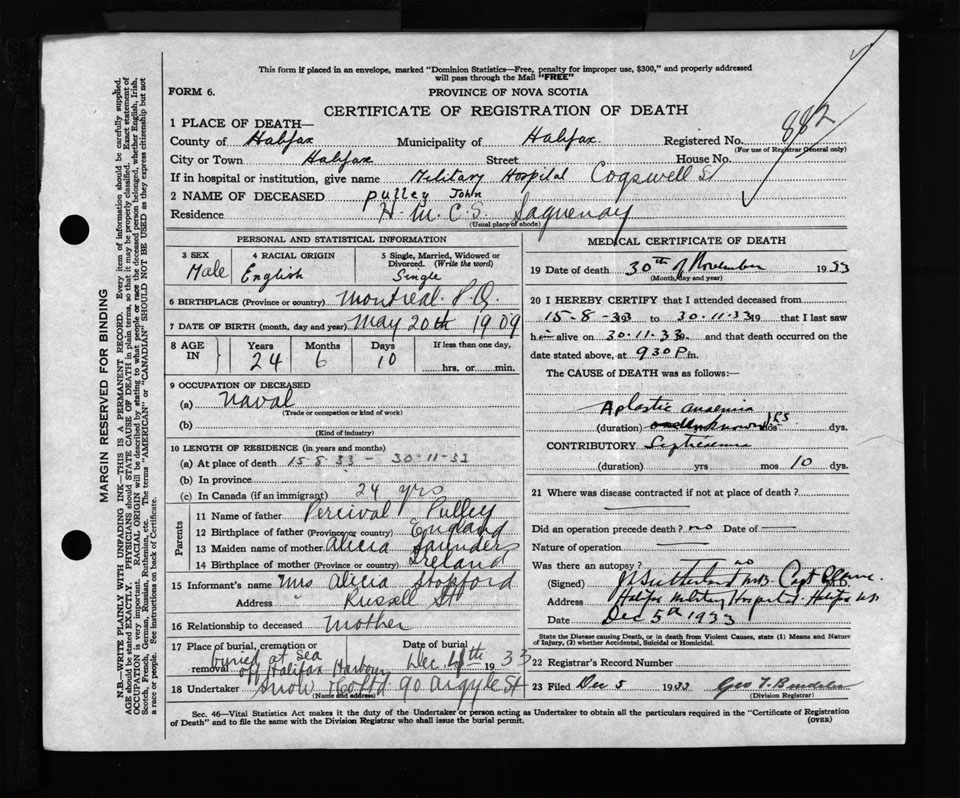 This form if placed in an envelope, marked "Dominion Statistics—Free, penalty for improper use, $300," and properly addressed
will pass through the Mail "FREE"
FORM 6.
PROVINCE OF NOVA SCOTIA
CERTIFICATE OF REGISTRATION OF DEATH
882
1 PLACE OF DEATH—
County of Halifax Municipality of Halifax Registered No.
(For use of Registrar General only)
City or Town Halifax Street House No.
If in hospital or institution, give name Military Hospital Cogswell St
2 NAME OF DECEASED Pulley John
Residence H.M.C.S. Saguenay
(Usual place of abode)
PERSONAL AND STATISTICAL INFORMATION
3 SEX
Male
4 RACIAL ORIGIN
English
5 Single, Married, Widowed or
Divorced. (Write the word)
Single
6 BIRTHPLACE (Province or country) Montreal P.Q.
7 DATE OF BIRTH (month, day and year) May 20th 1909
8 AGE IN
Years Months Days If less than one day,
24 6 10 hrs. or min.
9 OCCUPATION OF DECEASED
(a) Naval
(Trade or occupation or kind of work)
(b)
(Kind of industry)
10 LENGTH OF RESIDENCE (in years and months)
(a) At place of death 15-8-33 - 30-11-33
(b) In province
(c) In Canada (if an immigrant) 24 yrs
Parents
11 Name of father Percival Pulley
12 Birthplace of father (Province or country) England
13 Maiden name of mother Alicia Saunders
14 Birthplace of mother (Province or country) Ireland
15 Informant's name Mrs Alicia Stopford
Address Russell St
16 Relationship to deceased Mother
17 Place of burial, cremation or removal Buried at Sea off Halifax Harbour
Date of burial Dec 4th 1933
18 Undertaker Snow & Co Ltd 90 Argyle St
(Name and address)
MEDICAL CERTIFICATE OF DEATH
19 Date of death 30th of November 1933
(Month, day and year)
20 I HEREBY CERTIFY that I attended deceased from
15-8-33 19 to 30-11-33 19 that I last saw
h alive on 30-11-33 19 and that death occurred on the
date stated above, at 930 P m.
The CAUSE of DEATH was as follows:—
Aplastic anaemia
(duration) unknown yrs mos dys.
CONTRIBUTORY Septicaemia
(duration) yrs mos 10 dys.
21 Where was disease contracted if not at place of death?
Did an operation precede death? no Date of —
Nature of operation —
Was there an autopsy? no
(Signed) Sutherland M.B. Capt M.D.
Address Halifax Military Hospital. Halifax N.S
Date Dec 5th 1933
State the Disease causing Death, or in death from Violent Causes, state (1) Means and Nature
of Injury, (2) whether Accidental, Suicidal or Homicidal.
22 Registrar's Record Number
23 Filed Dec 5 1933 Geo T.
(Division Registrar)
Sec. 46—Vital Statistics Act makes it the duty of the Undertaker or person acting as Undertaker to obtain all the particulars required in the "Certificate of Registration
of Death" and to file the same with the Division Registrar who shall issue the burial permit.
(OVER)
MARGIN RESERVED FOR BINDING
N.B.—WRITE PLAINLY WITH UNFADING INK—THIS IS A PERMANENT RECORD. Every item of information should be carefully supplied.
AGE should be stated EXACTLY. PHYSICIANS should STATE CAUSE OF DEATH in plain terms, so that it may be properly classified. Exact statement of
OCCUPATION is very important. RACIAL ORIGIN will be described by stating to what people or race the deceased person belonged, whether English, Irish,
Scotch, French, German, Russian, Ruthenian, etc. The terms "AMERICAN" or "CANADIAN" SHOULD NOT BE USED as they express citizenship but not
a race or people. See instructions on back of Certificate.